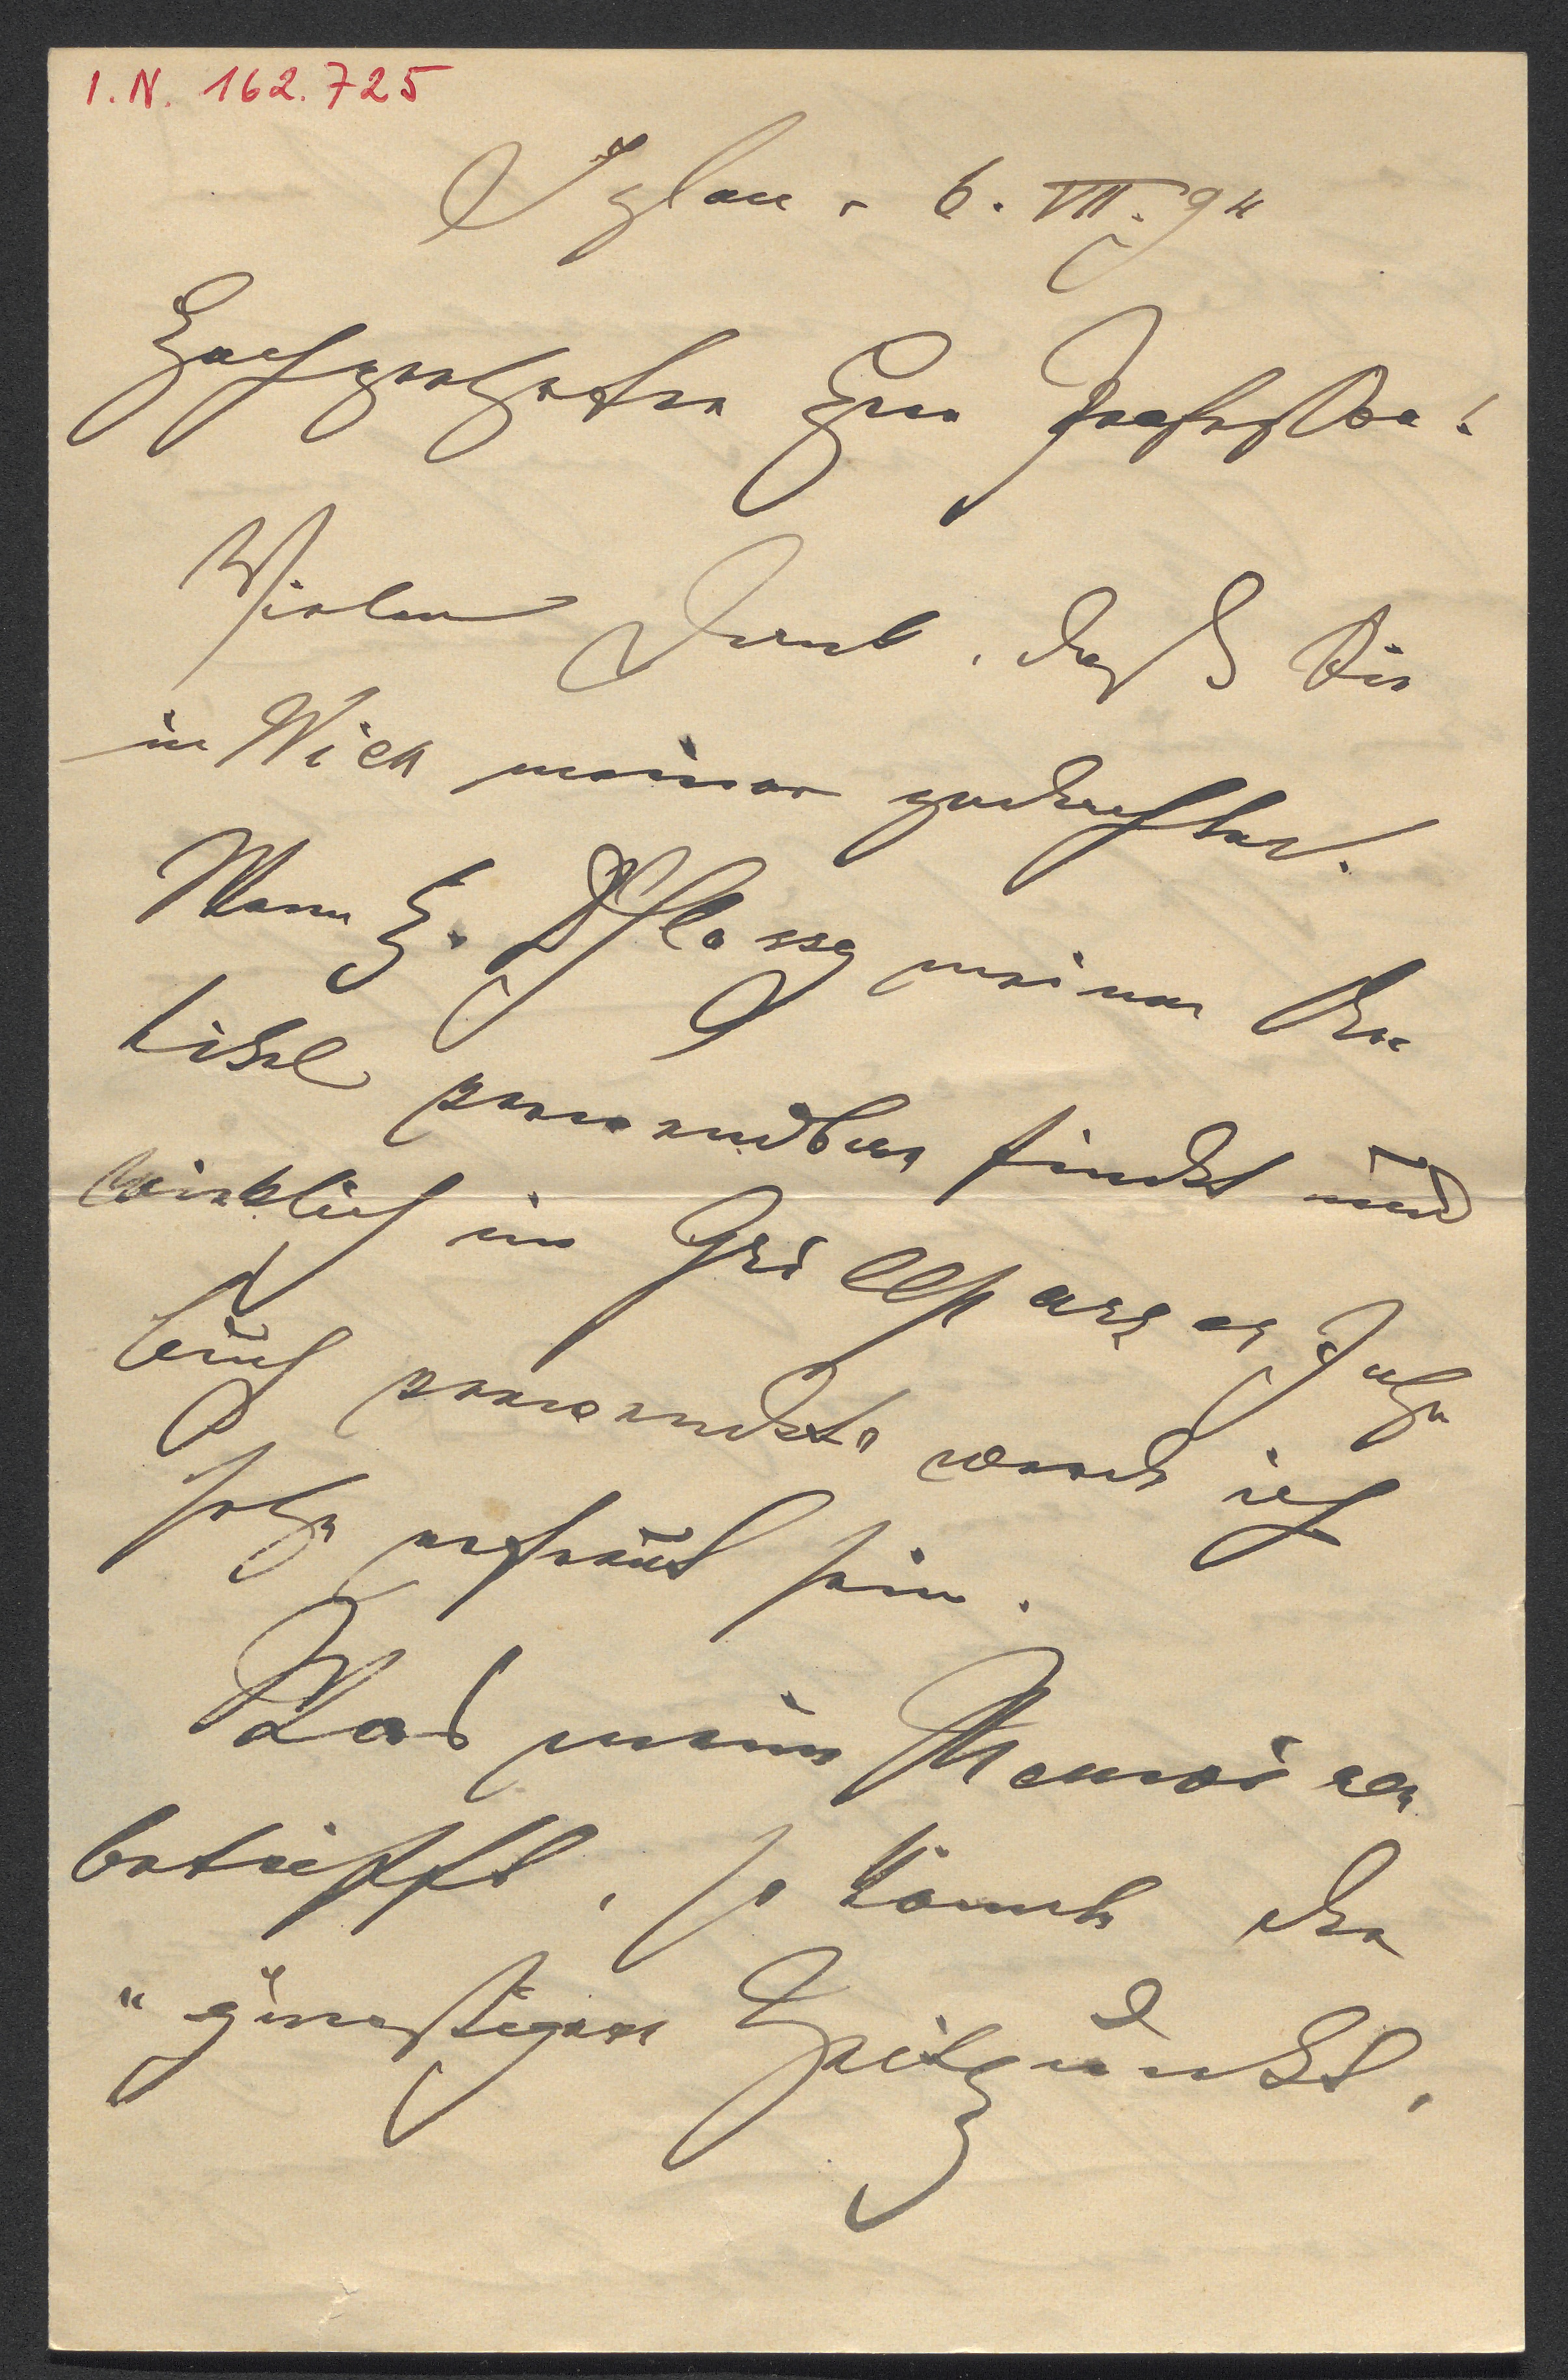 I.N. 162.725
Iglau, 6. VII. 94
Hochgeehrter Herr Professor!
Vielen Dank, daß Sie
in Wien meiner gedachten.
Wenn H. Glossy meinen Ar
tikel verwendbar findet und
wirklich im Grillparzer Jahr
buch verwendet, werde ich
sehr erfreut sein.
Was meine Memoiren
betrifft, so könnte der
"günstigere Zeitpunkt,